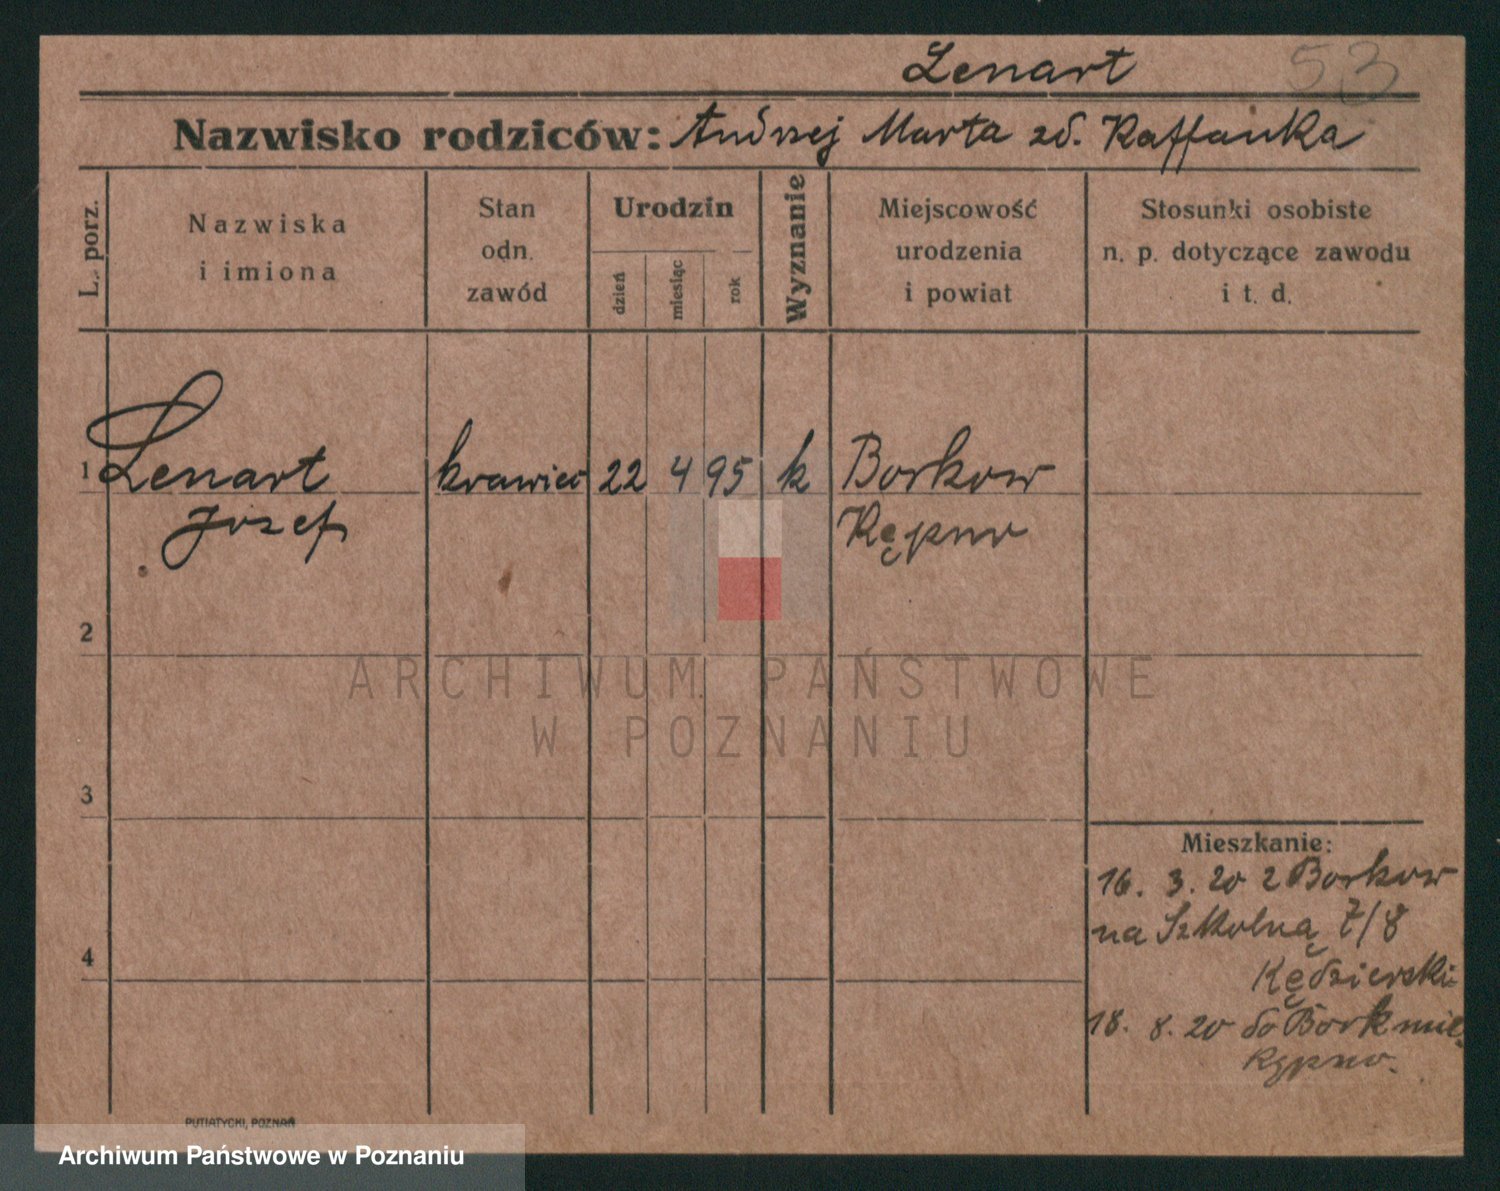 Lenart 53
Nazwisko rodziców: Andrzej Marta zd. Raffanka
L. porz.
Nazwiska
i imiona
Stan
odn.
zawód
Urodzin
dzień
miesiąc
rok
Wyznanie
Miejscowość
urodzenia
i powiat
Stosunki osobiste
n. p. dotyczące zawodu
i t. d.
1 Lenart krawiec 22 4 95 k Borkow
Jozef Kępno
2
ARCHIWUM PAŃSTWOWE
W POZNANIU
3
Mieszkanie:
16. 3. 20 z Borkow
na Szkolną 7/8
Kędzierski
4
18. 8. 20 do Bork
Kępno.
PUTIATYCKI, POZNAŃ
Archiwum Państwowe w Poznaniu